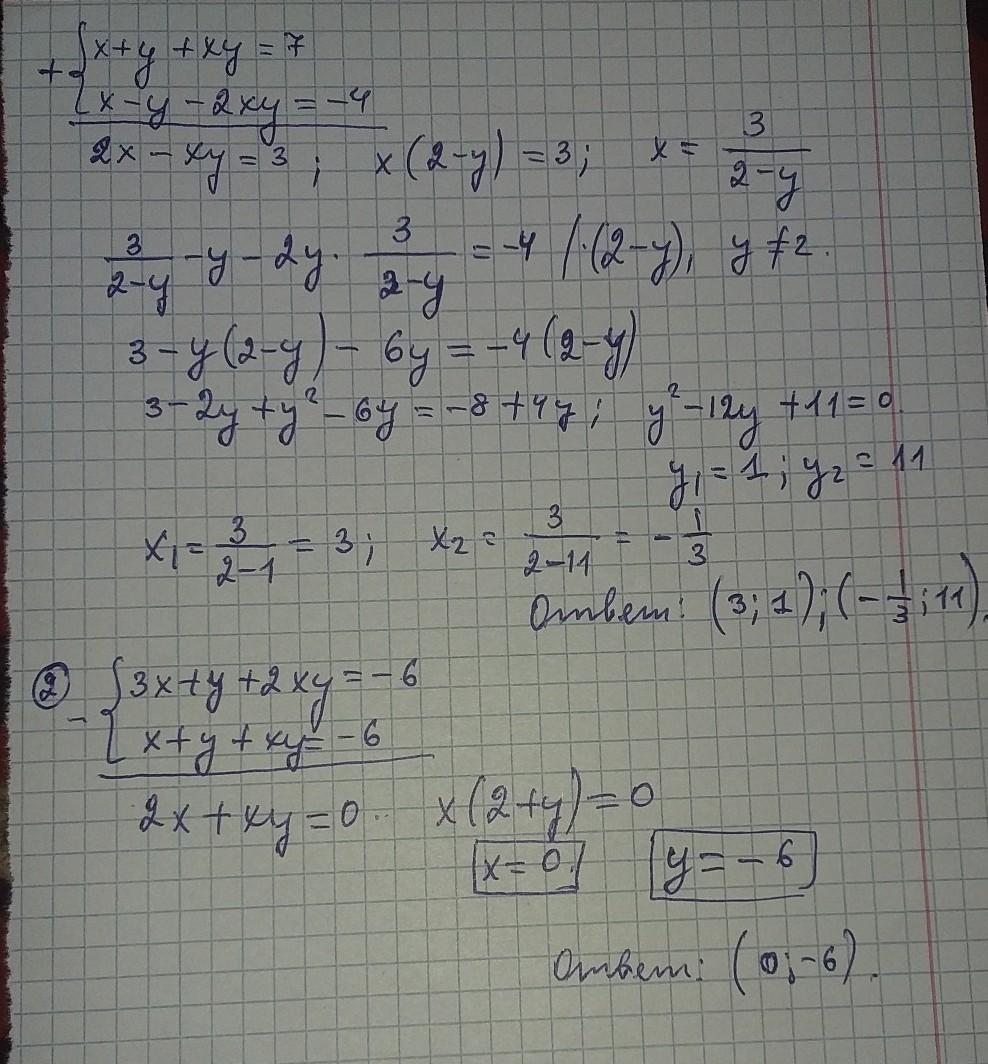 + { x+y+xy=7
x-y-2xy=-4
2x-xy=3; x(2-y)=3; x= 3/(2-y)
3/(2-y) -y-2y· 3/(2-y) =-4 /·(2-y), y≠2.
3-y(2-y)-6y=-4(2-y)
3-2y+y²-6y=-8+4y; y²-12y+11=0.
y₁=1; y₂=11
x₁= 3/(2-1) =3; x₂= 3/(2-11) = -1/3
Ответ: (3;1);(-1/3;11).
② - { 3x+y+2xy=-6
x+y+xy=-6
2x+xy=0.. x(2+y)=0
x=0. y=-6
Ответ: (0;-6).